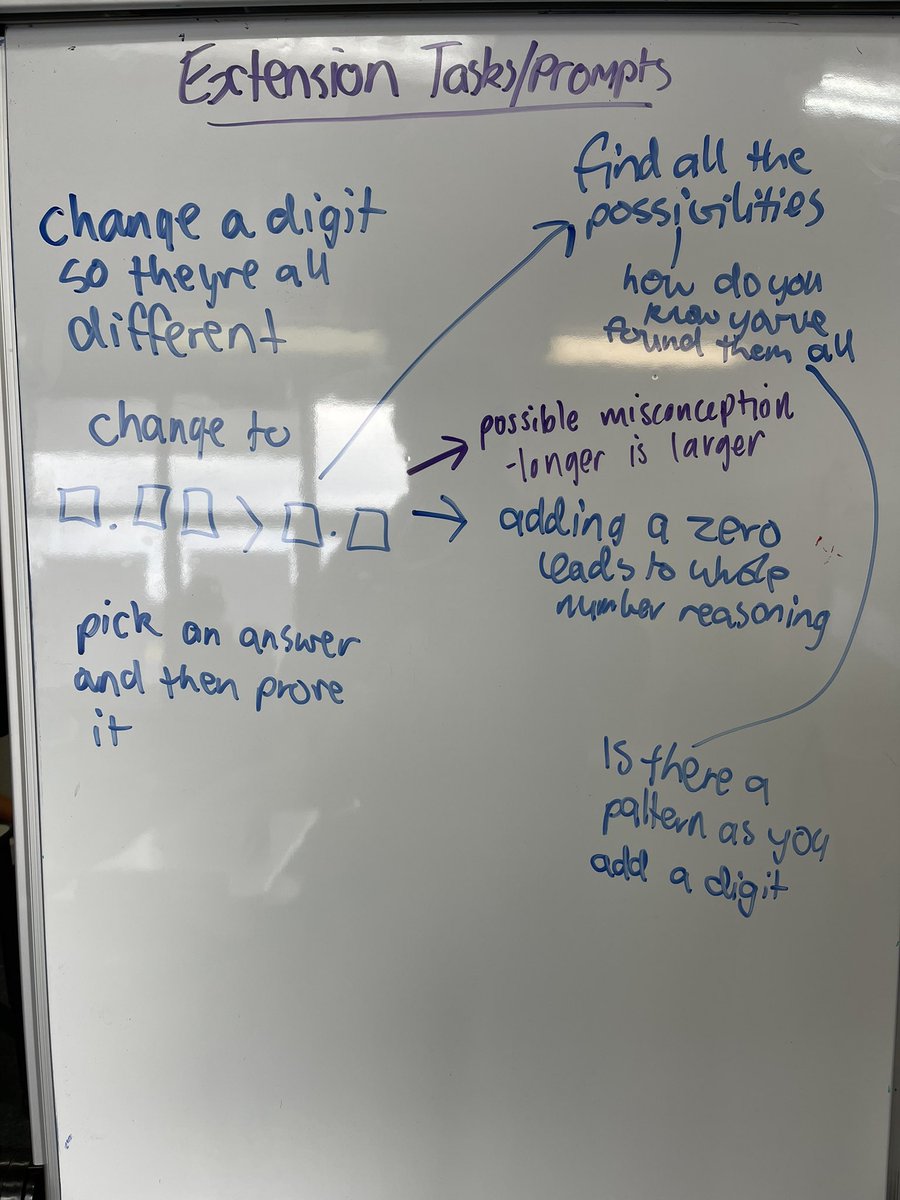 Extension Tasks/Prompts
change a digit
so theyre all
different
change to
□.□□ > □.□
pick an answer
and then prove
it
find all the
possibilities
how do you
know you've
found them all
possible misconception
-longer is larger
adding a zero
leads to whole
number reasoning
Is there a
pattern as you
add a digit